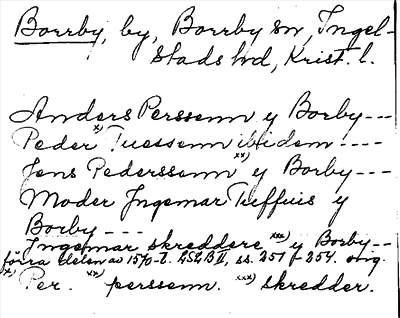 Borrby, by, Borrby sn, Ingel-
stads hd, Krist. l.
Anders Perssenn y Borby---
Peder x) Tuessenn ibidem ----
Jens Pederssenn xx) y Borby---
Moder Ingemar Tueffuis y
Borby ---
Ingemar skreddere xxx) y Borby--
förra delen av 1570-t. LSLB II, ss. 251-254. orig.
x) Per. xx) perssenn. xxx) skredder.